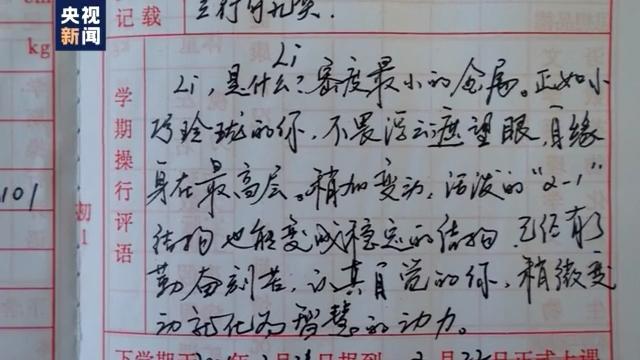 央视
新闻
记载
kg
101
学期操行评语
初1
Li
Li，是什么？密度最小的金属。正如小
巧玲珑的你，不畏浮云遮望眼，自缘
身在最高层。稍加变动，活泼的“2-1”
结构也能变成稳定的结构，已经有了
勤奋刻苦，认真自觉的你，稍微变
动就化为智慧的动力。